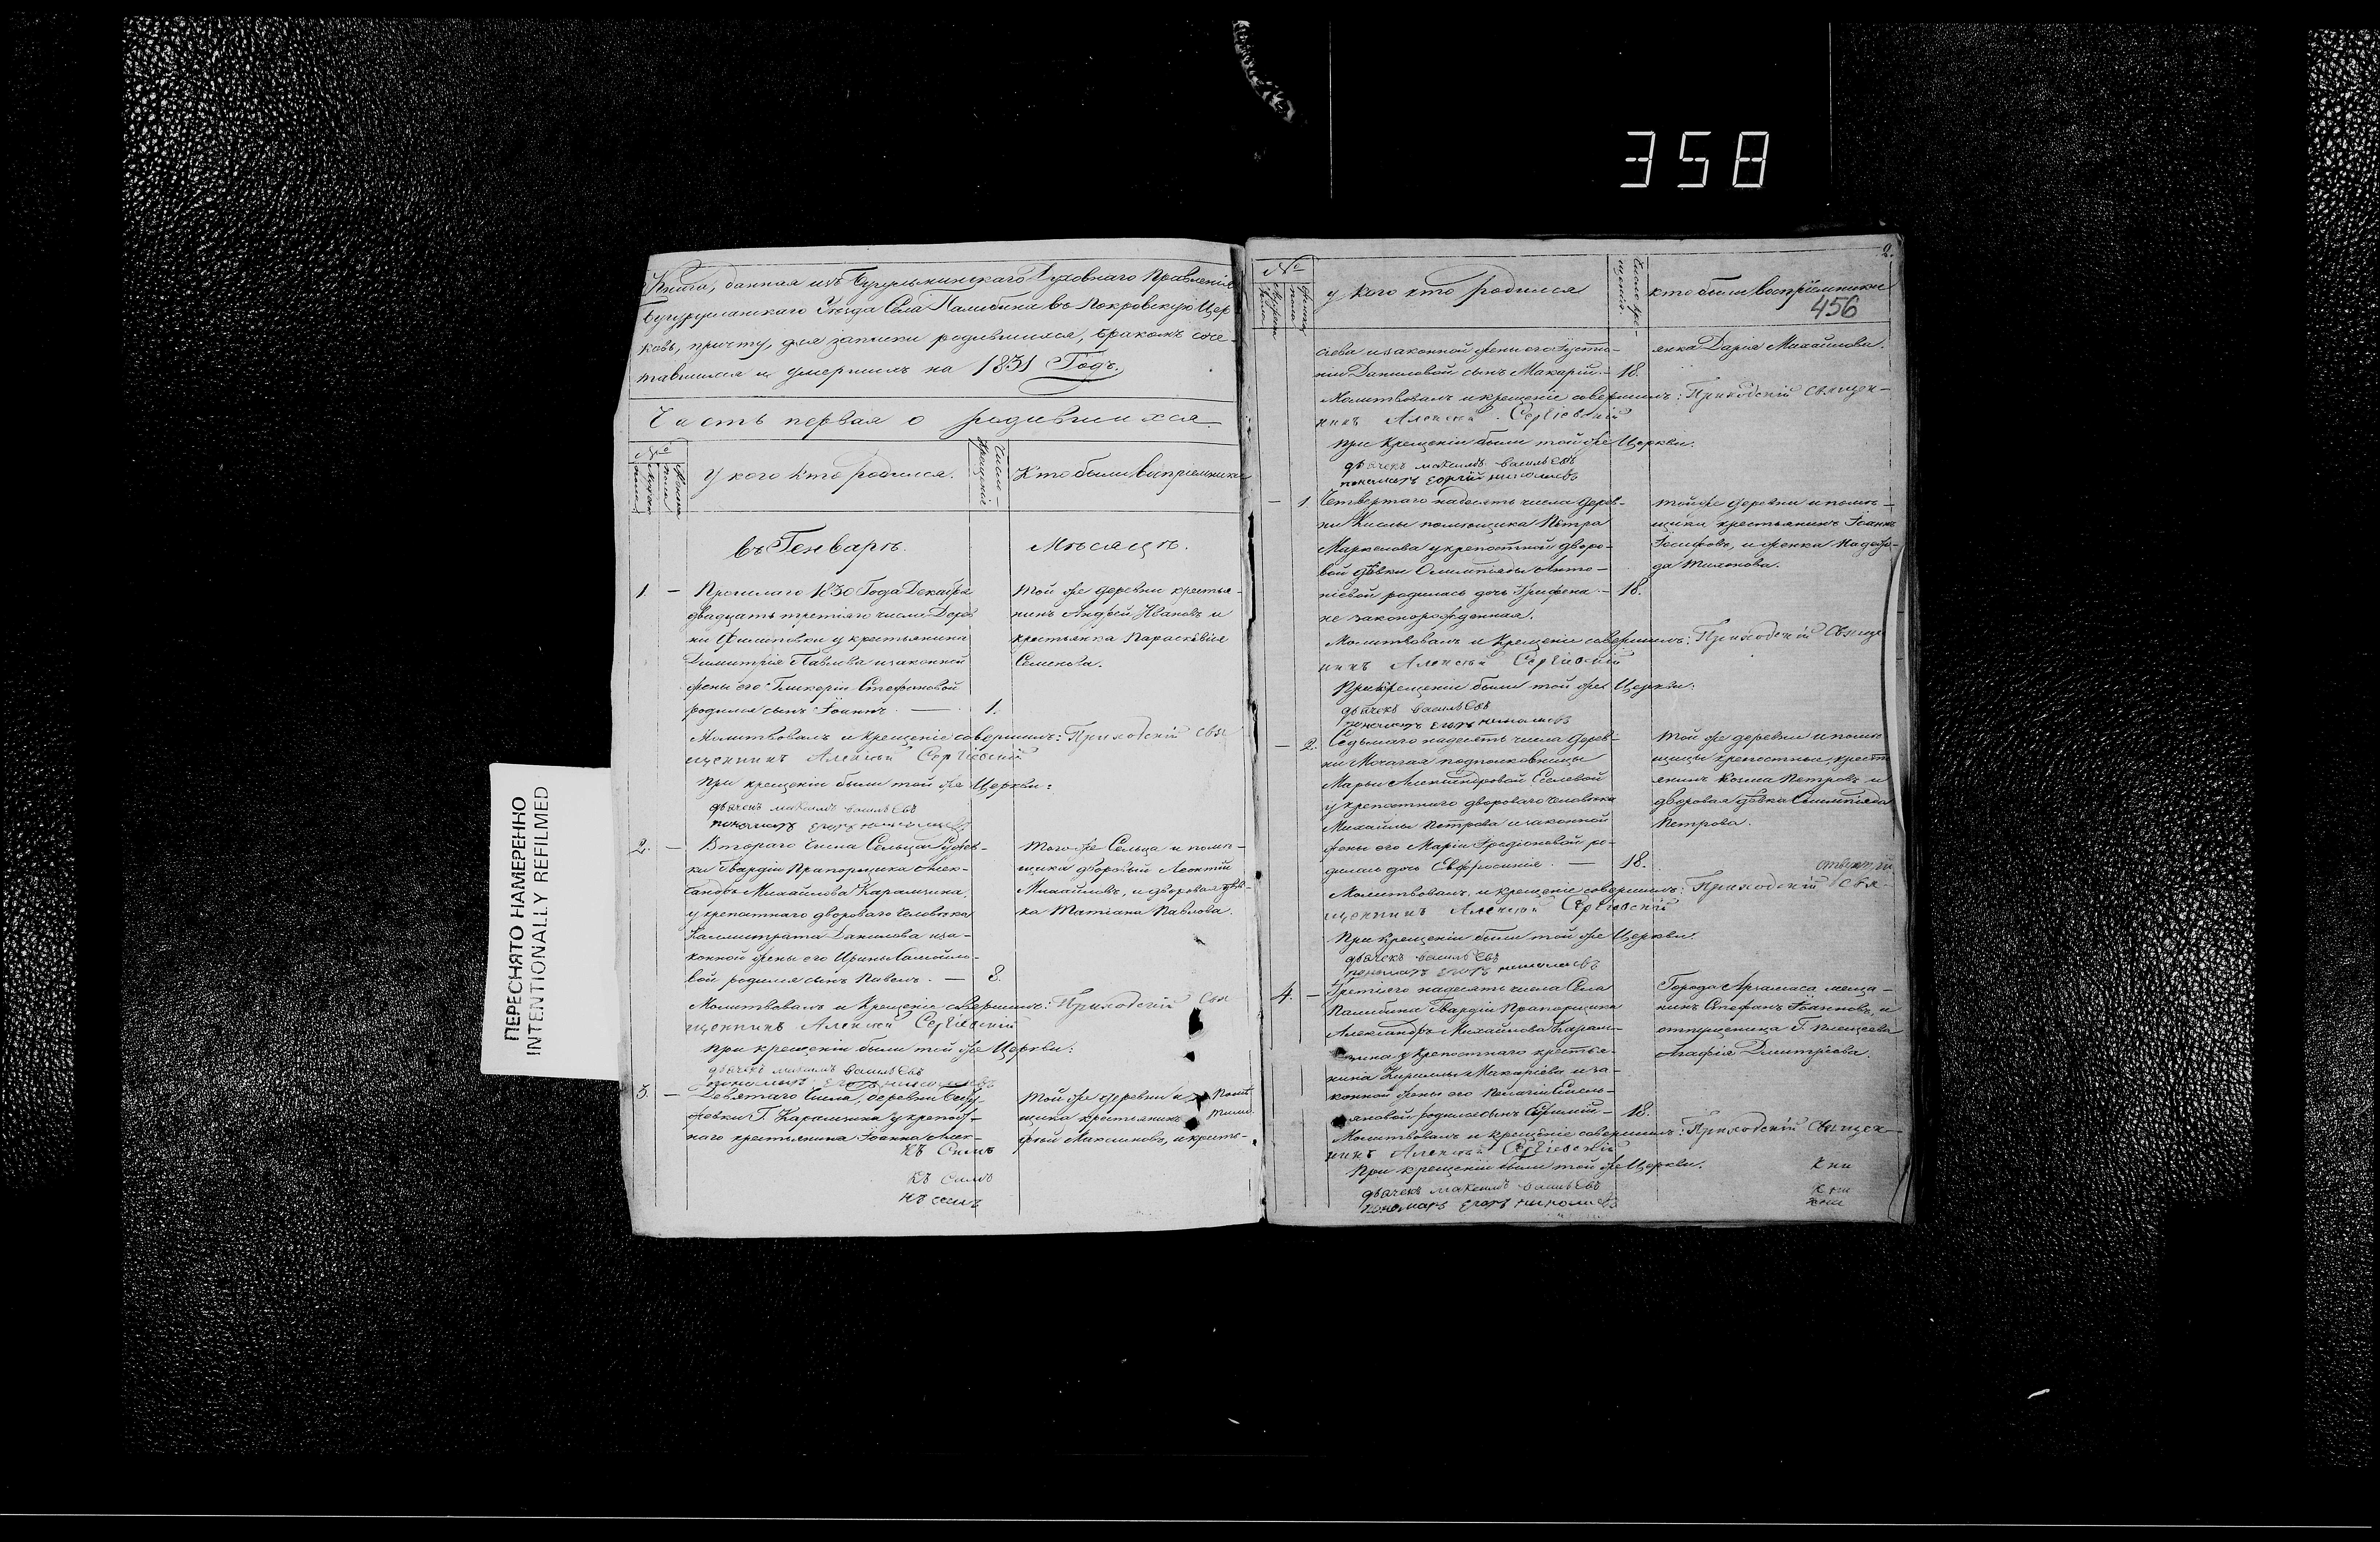 358
Книга, данная изъ Бугульминскаго Духовнаго Правленія
Бугурусланскаго Уезда Села Палибина въ Покровскую Цер
ковь, причту, для записки родившихся, бракомъ соче-
тавшихся и умершихъ на 1831 Годъ.
Часть первая о родившихся
№
мужеска пола
женска пола
У кого кто родился.
Число крещенія
Кто были воспріемники
въ Генваре.
Месяце.
1. — Прошлаго 1830 Года Декабря
двадцать третіяго числа Дерев
ни Филиповки у крестьянина
Димитрія Павлова и законной
жены его Гликеріи Стефановой
родился сынъ Іоаннъ. — 1.
той же деревни крестья-
нинъ Андрей Ивановъ и
крестьянка Параскевія
Семенова.
Молитвовалъ и крещеніе совершилъ: Приходскій Свя
щенникъ Алексій Сергіевскій
при крещеніи были той же Церкви:
дьячекъ максимъ васильевъ
пономарь егоръ николаевъ
2. — Втораго числа Сельца
ки Гвардіи Прапорщика Алек-
сандръ Михайлова Карамзина,
у крепостнаго дворового человека
Каллистрата Данилова и за-
конной жены его Ирины Самойло-
вой родился сынъ Павелъ. — 8.
того же Сельца и поме-
щика дворовый Леонтій
Михайловъ, и дворовая дев-
ка Татіана Павлова.
Молитвовалъ и Крещеніе совершилъ: Приходскій Свя
щенникъ Алексій Сергіевскій
при крещеніи были той же Церкви:
дьячекъ максимъ васильевъ
пономарь егоръ николаевъ
3. — Девятаго числа, деревни
Г. Карамзина у крепост-
наго крестьянина Іоанна Алек-
той же деревни и поме
щика крестьянинъ Тимо-
фей Максимовъ, и кресть-
къ Симъ
къ симъ
къ симъ
2.
№
мужеска пола
женска пола
у кого кто родился
Число кре-
щенія.
кто были воспріемники
456
сіева и законной жены его Іусти-
ніи Даниловой сынъ Макарій. — 18.
янка Дарія Михайлова.
Молитвовалъ и крещеніе совершилъ: Приходскій Священ-
никъ Алексій Сергіевскій
при Крещеніи были той же Церкви.
дьячекъ максимъ васильевъ
пономарь Георгій николаевъ
— 1. Четвертаго надесять числа Дерев-
ни Кислы помещика Петра
Маркелова у крепостной дворо-
вой девки Олимпіяды Анто-
ніевой родилась дочь Агрифена. — 18.
не законорожденная.
той же деревни и поме-
щика крестьянинъ Іоаннъ
Іосифовъ, и женка Надеж-
да Тихонова.
Молитвовалъ и Крещеніе совершилъ: Приходскій Священ
никъ Алексій Сергіевскій
При крещеніи были той же Церкви.
дьячекъ васильевъ
пономарь егоръ николаевъ
— 2. Седьмаго надесять числа дерев-
ни Мочагая подполковницы
Марьи Александровой
у крепостнаго двороваго человека
Михайлы Петрова и законной
жены его Маріи Иродіоновой ро-
дилась дочь Евфросинія. — 18.
той же деревни и поме
щицы крепостные, крест
янинъ Козма Петровъ и
дворовая девка Олимпіяда
Петрова.
Молитвовалъ, и крещеніе совершилъ: Приходскій Свя-
щенникъ Алексій Сергіевскій
При крещеніи были той же Церкви.
дьячекъ васильевъ
пономарь егоръ николаевъ
4. — Третіяго надесять числа Села
Палибина Гвардіи Прапорщика
Александръ Михайлова Карам-
зина у крепостнаго крестья-
нина Кирилла Макаріева и за-
конной жены его Пелагіи Емель-
яновой родился сынъ — 18.
Города Арзамаса меща-
нинъ Стефанъ Іоанновъ, и
отпущеница Г. Плещеева
Агафія Дмитріева.
Молитвовалъ и крещеніе совершилъ: Приходскій Священ-
никъ Алексій Сергіевскій
При крещеніи были той же Церкви.
дьячекъ максимъ васильевъ
пономарь егоръ николаевъ
кни
кни
кни
ПЕРЕСНЯТО НАМЕРЕННО
INTENTIONALLY REFILMED